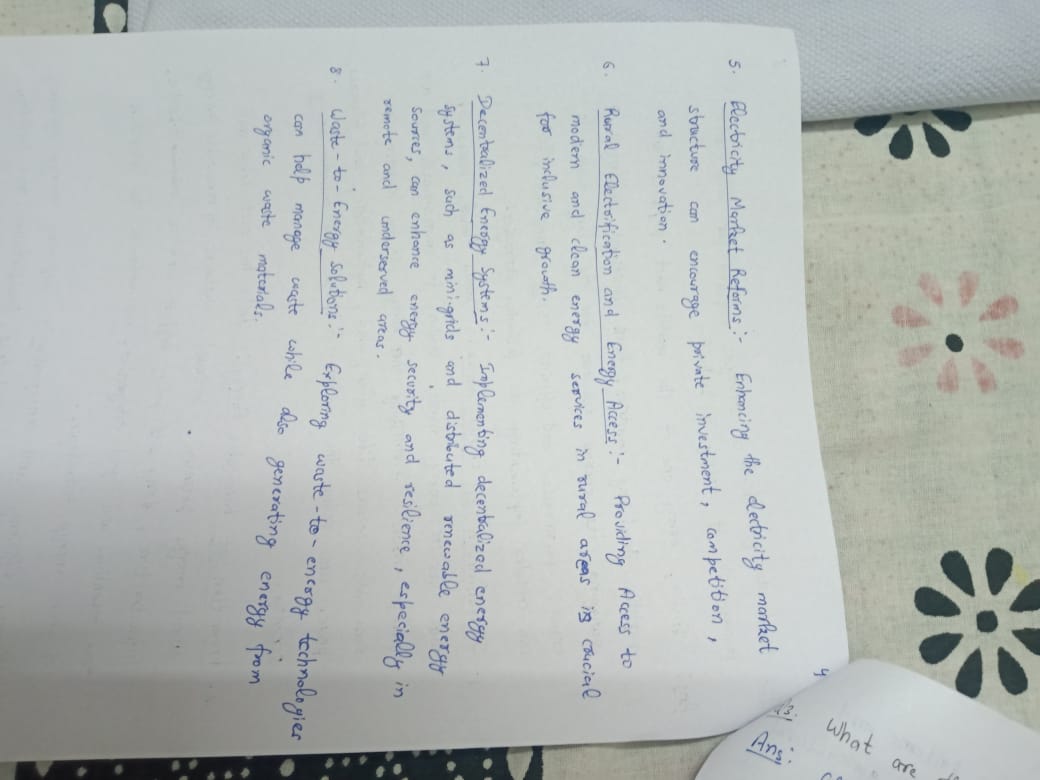 4
5. Electricity Market Reforms:- Enhancing the electricity market
structure can encourage private investment, competition,
and innovation.
6. Rural Electrification and Energy Access:- Providing Access to
modern and clean energy services in rural areas is crucial
for inclusive growth.
7. Decentralized Energy Systems:- Implementing decentralized energy
systems, such as mini-grids and distributed renewable energy
sources, can enhance energy security and resilience, especially in
remote and underserved areas.
8. Waste-to-Energy Solutions:- Exploring waste-to-energy technologies
can help manage waste while also generating energy from
organic waste materials.
What are
Ans: